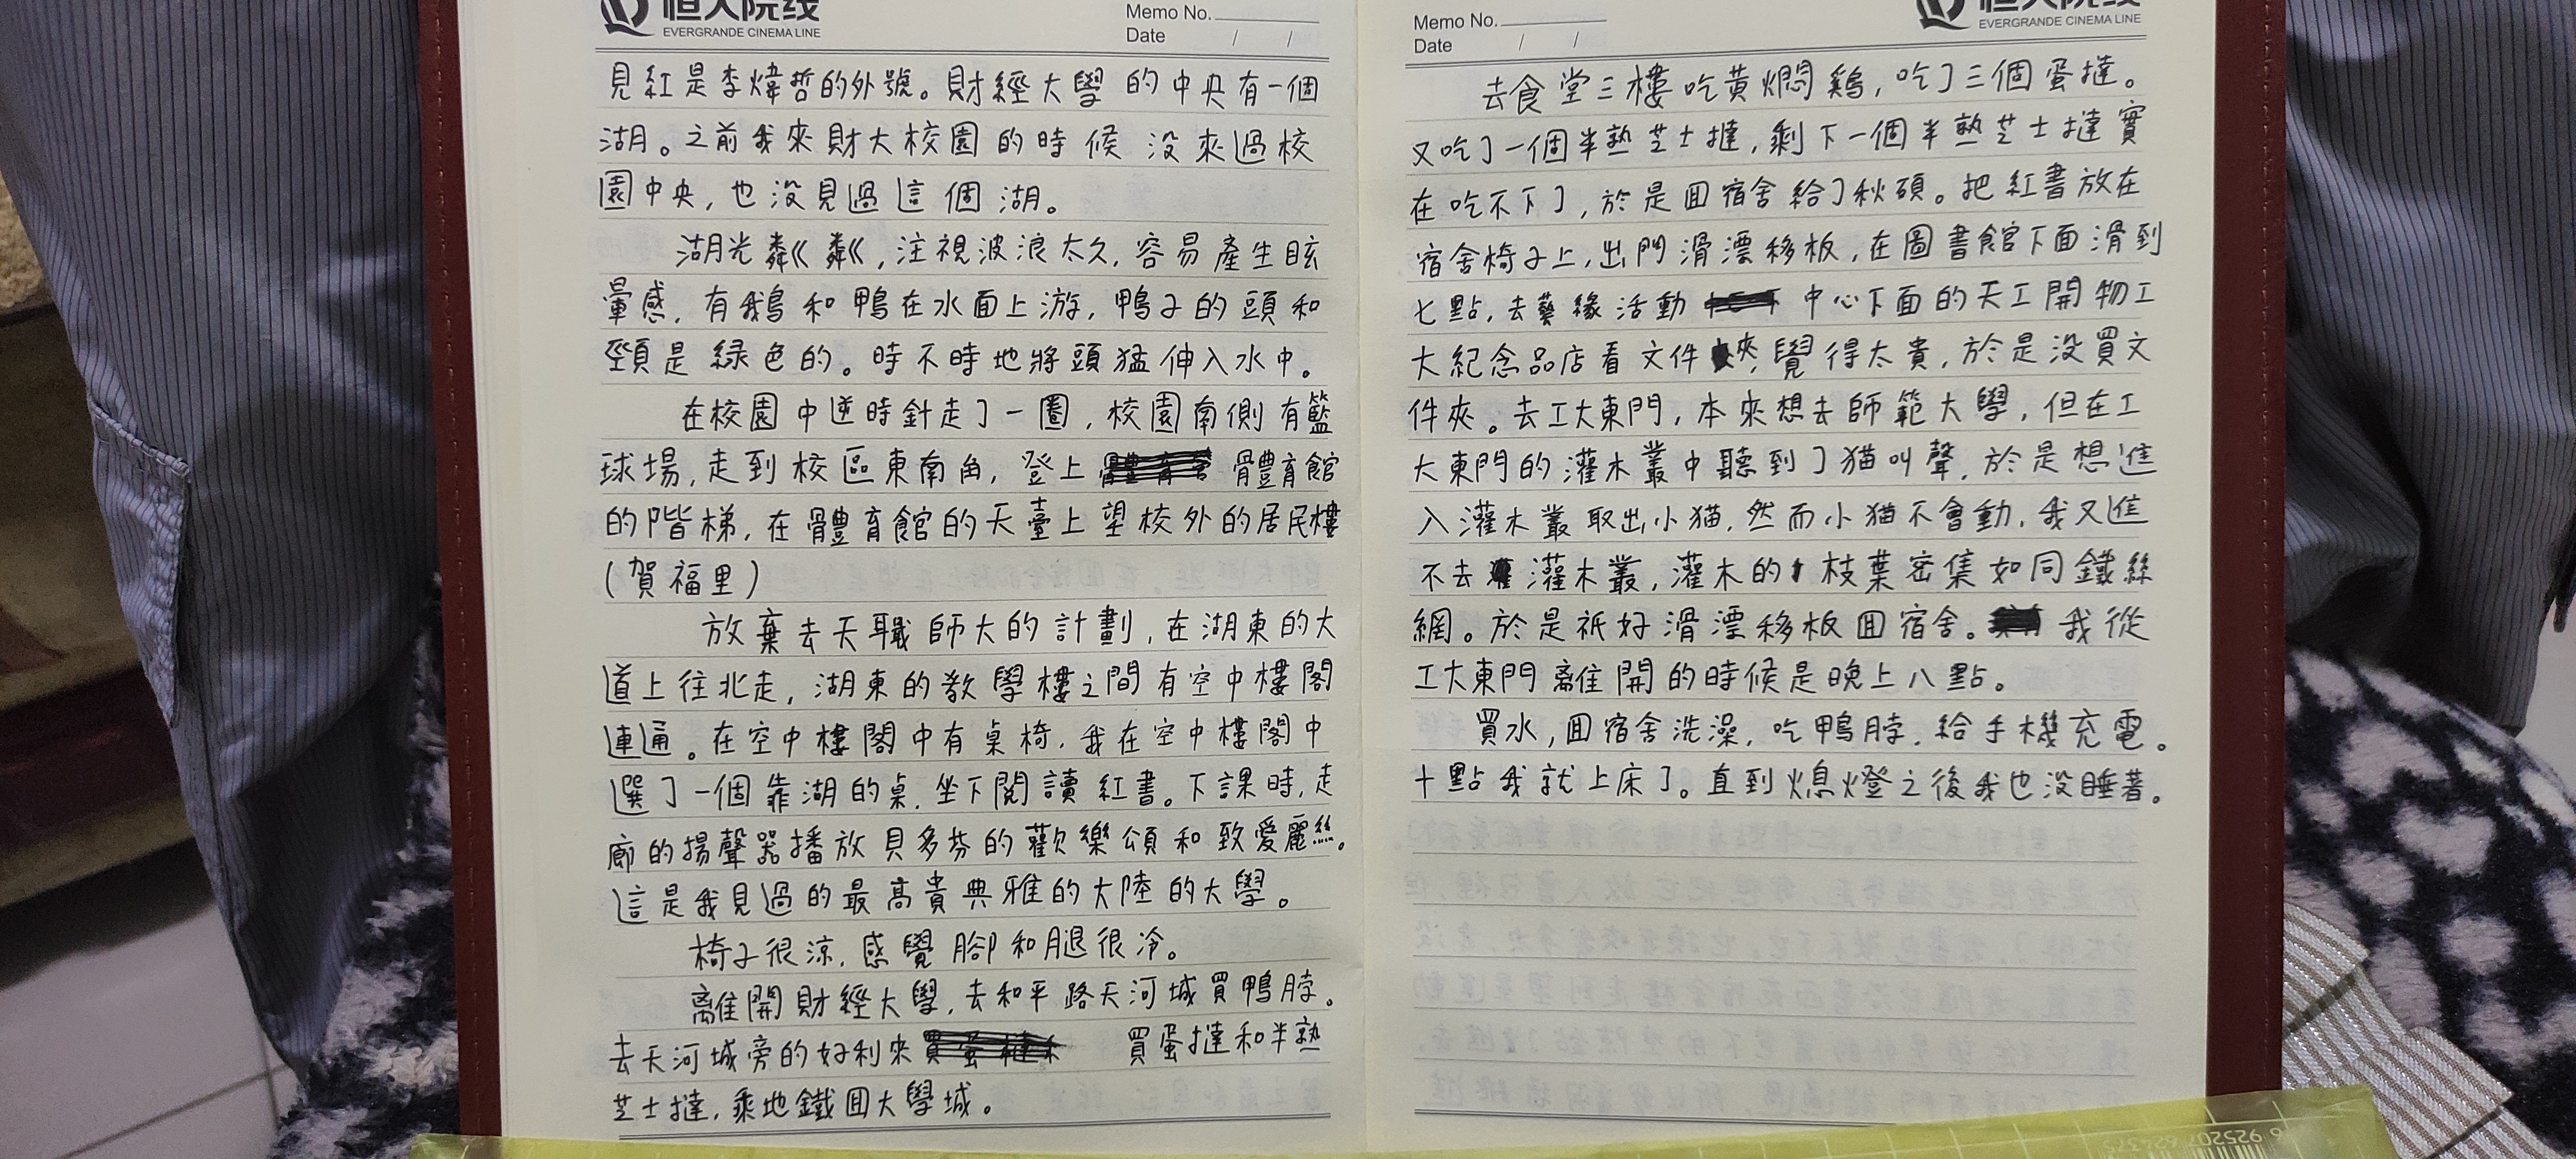 恒大院线
EVERGRANDE CINEMA LINE
Memo No.
Date / /
見紅是李煒哲的外號。財經大學的中央有一個
湖。之前我來財大校園的時候沒來過校
園中央,也沒見過這個湖。
湖光粼粼,注視波浪太久,容易產生眩
暈感,有鵝和鴨在水面上游,鴨子的頭和
頸是綠色的。時不時地將頭猛伸入水中。
在校園中逆時針走了一圈,校園南側有籃
球場,走到校區東南角,登上體育館
的階梯,在體育館的天臺上望校外的居民樓
(賀福里)
放棄去天職師大的計劃,在湖東的大
道上往北走,湖東的教學樓之間有空中樓閣
連通。在空中樓閣中有桌椅,我在空中樓閣中
選了一個靠湖的桌,坐下閱讀紅書。下課時,走
廊的揚聲器播放貝多芬的歡樂頌和致愛麗絲。
這是我見過的最高貴典雅的大陸的大學。
椅子很涼,感覺腳和腿很冷。
離開財經大學,去和平路天河城買鴨脖。
去天河城旁的好利來 買蛋撻和半熟
芝士撻,乘地鐵囬大學城。
Memo No.
Date / /
恒大院线
EVERGRANDE CINEMA LINE
去食堂三樓吃黃燜鷄,吃了三個蛋撻。
又吃了一個半熟芝士撻,剩下一個半熟芝士撻實
在吃不下了,於是囬宿舍給了秋碩。把紅書放在
宿舍椅子上,出門滑漂移板,在圖書館下面滑到
七點,去藝緣活動中心下面的天工開物工
大紀念品店看文件夾,覺得太貴,於是沒買文
件夾。去工大東門,本來想去師範大學,但在工
大東門的灌木叢中聽到了猫叫聲,於是想進
入灌木叢取出小猫,然而小猫不會動,我又進
不去灌木叢,灌木的枝葉密集如同鐵絲
網。於是祇好滑漂移板囬宿舍。我從
工大東門離開的時候是晚上八點。
買水,囬宿舍洗澡,吃鴨脖,給手機充電。
十點我就上床了。直到熄燈之後我也沒睡著。